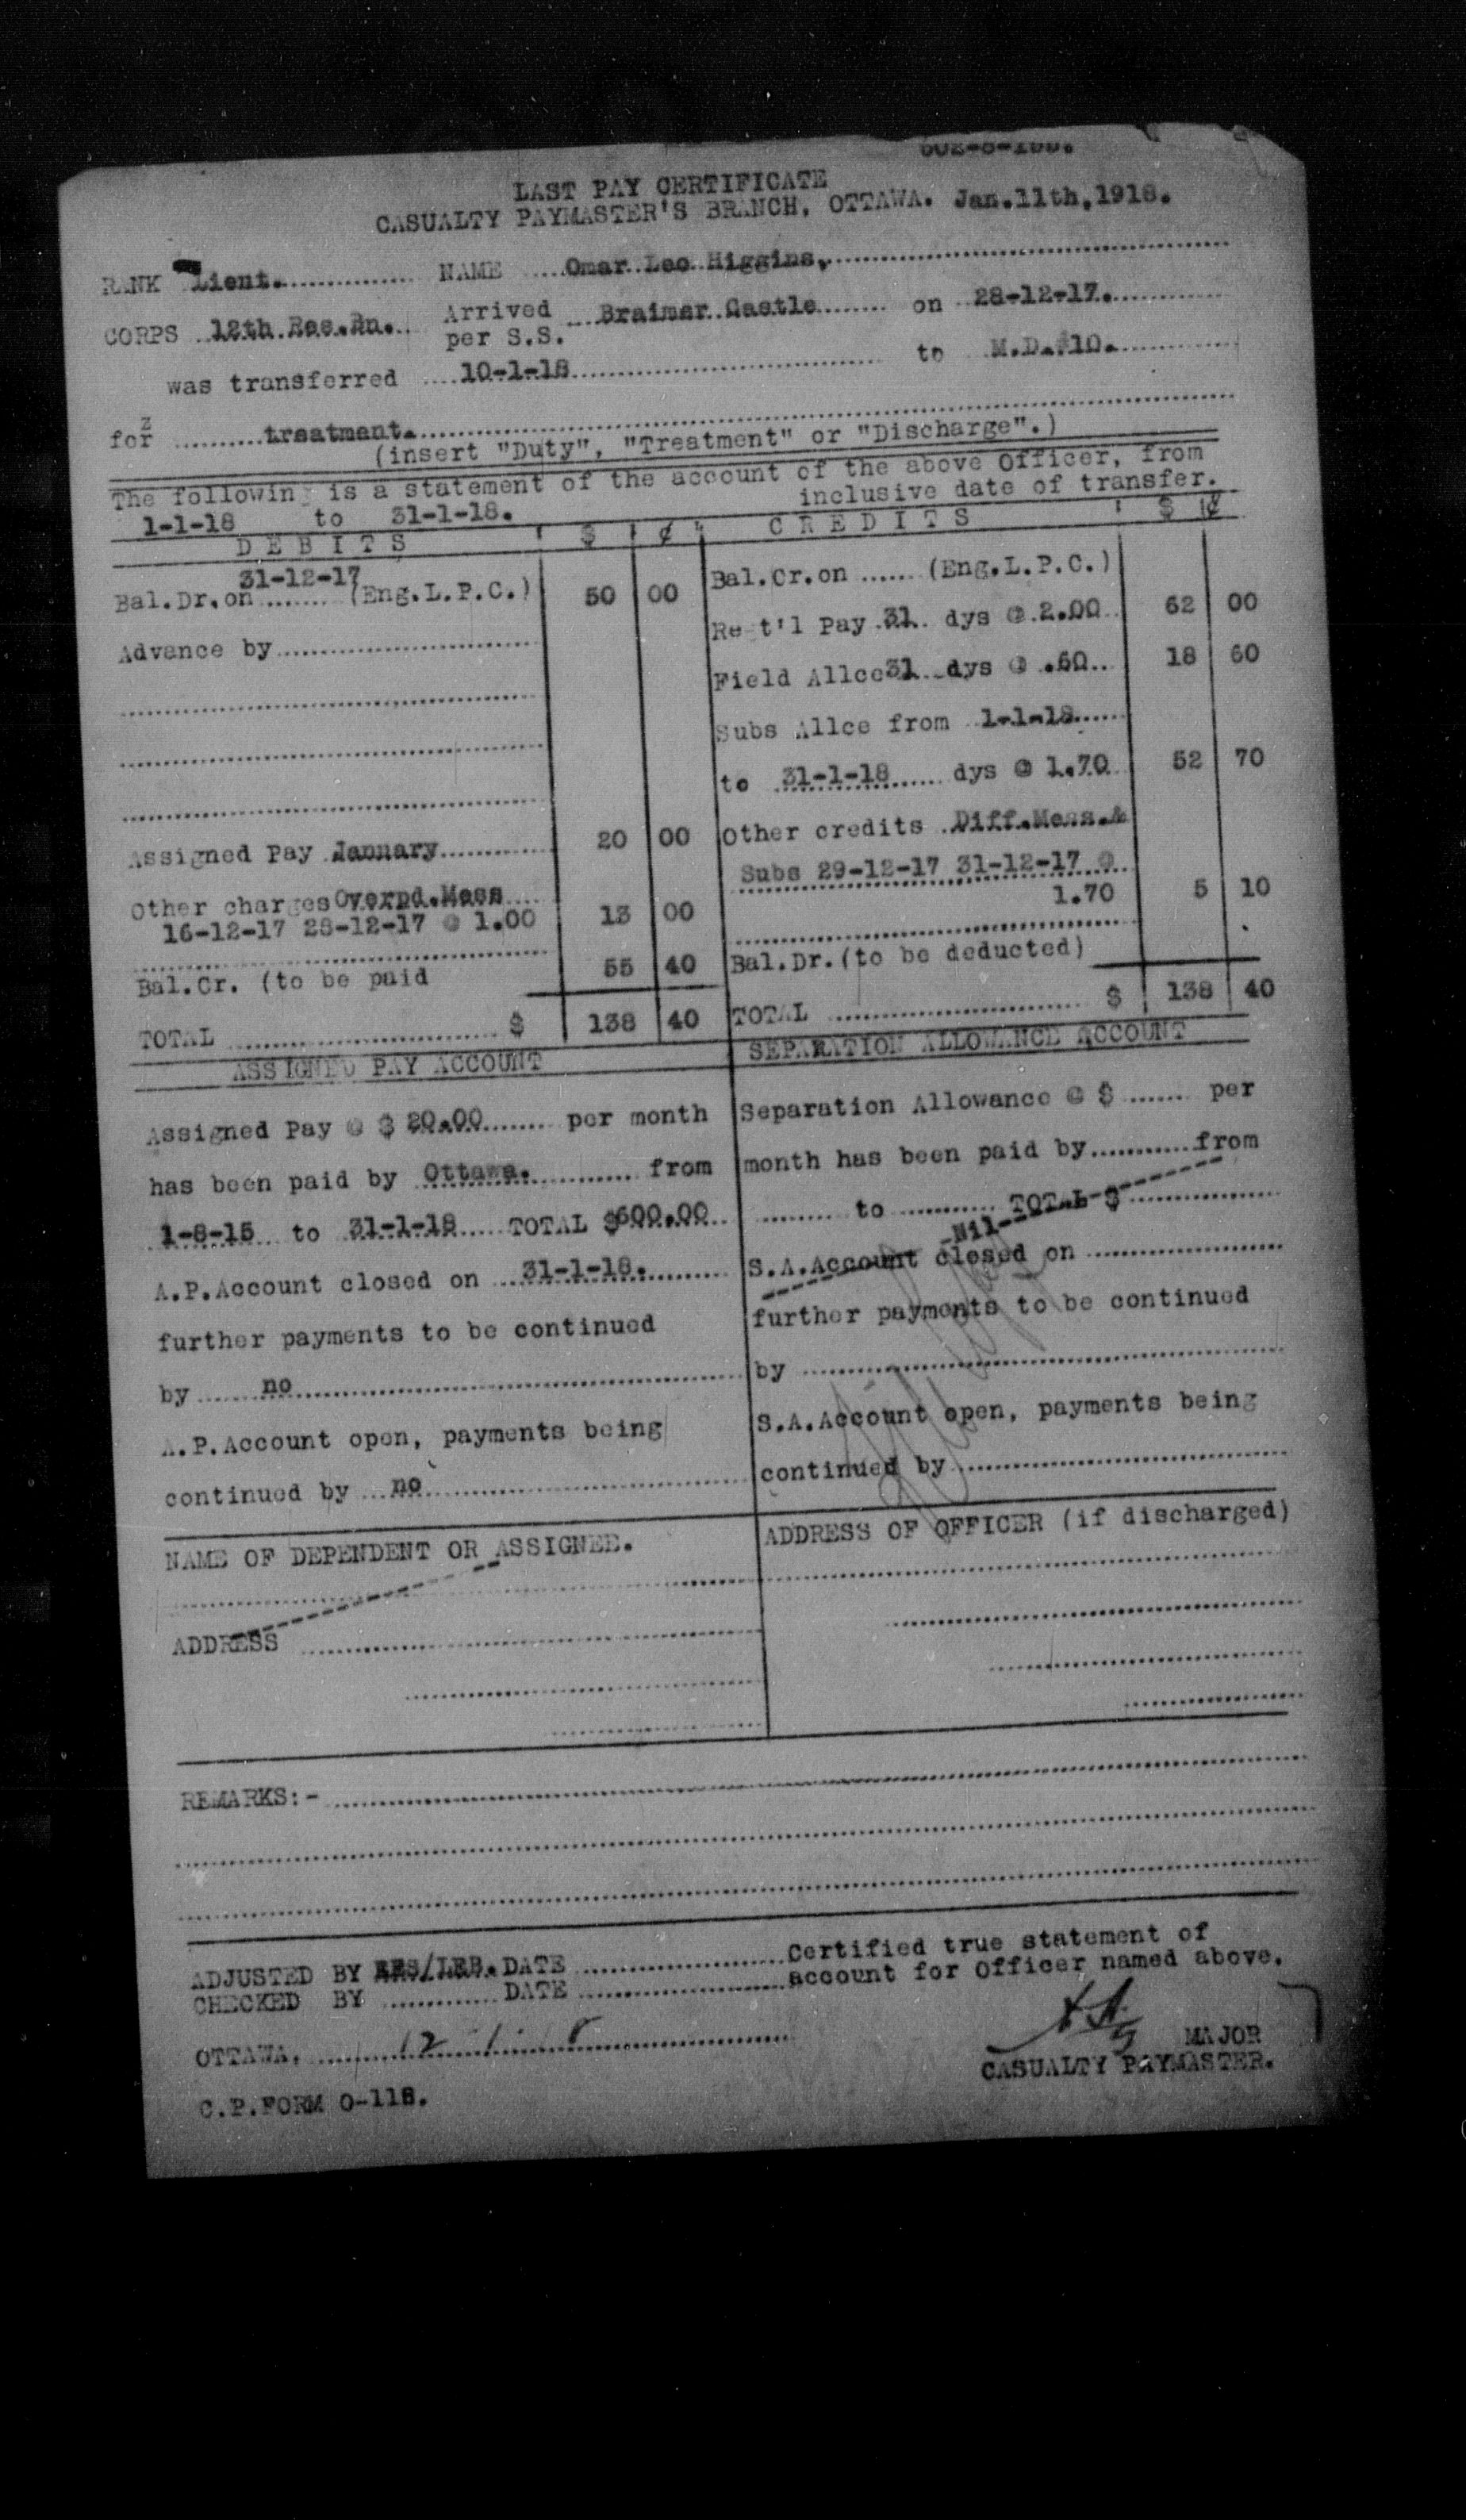 LAST PAY CERTIFICATE
CASUALTY PAYMASTER'S BRANCH, OTTAWA. Jan.11th,1918.
RANK Lieut. NAME Omar Leo Higgins,
CORPS 12th Res.Bn. Arrived per S.S. Braimar Castle on 28-12-17.
was transferred 10-1-18 to M.D.#10.
for treatment.
(insert "Duty", "Treatment" or "Discharge".)
The following is a statement of the account of the above Officer, from
1-1-18 to 31-1-18. inclusive date of transfer.
DEBITS $ ¢ CREDITS $ ¢
Bal.Dr.on 31-12-17 (Eng.L.P.C.) 50 00
Advance by
Assigned Pay January 20 00
Other charges Overpd.Mess
16-12-17 28-12-17 @ 1.00 13 00
Bal.Cr. (to be paid 55 40
TOTAL $ 138 40
Bal.Cr.on (Eng.L.P.C.)
Reg't'l Pay 31 dys @ 2.00 62 00
Field Allce 31 dys @ .60 18 60
Subs Allce from 1-1-18
to 31-1-18 dys @ 1.70 52 70
Other credits Diff.Mess.&
Subs 29-12-17 31-12-17 @
1.70 5 10
Bal.Dr.(to be deducted)
TOTAL $ 138 40
ASSIGNED PAY ACCOUNT
Assigned Pay @ $ 20.00 per month
has been paid by Ottawa. from
1-8-15 to 31-1-18 TOTAL $600.00
A.P.Account closed on 31-1-18.
further payments to be continued
by no
A.P.Account open, payments being
continued by no
SEPARATION ALLOWANCE ACCOUNT
Separation Allowance @ $ per
month has been paid by from
to TOTAL $
Nil
S.A.Account closed on
further payments to be continued
by
S.A.Account open, payments being
continued by
NAME OF DEPENDENT OR ASSIGNEE.
ADDRESS
ADDRESS OF OFFICER (if discharged)
REMARKS:-
ADJUSTED BY DATE
CHECKED BY DATE
Certified true statement of
account for Officer named above.
OTTAWA.
MAJOR
CASUALTY PAYMASTER.
C.P.FORM O-118.